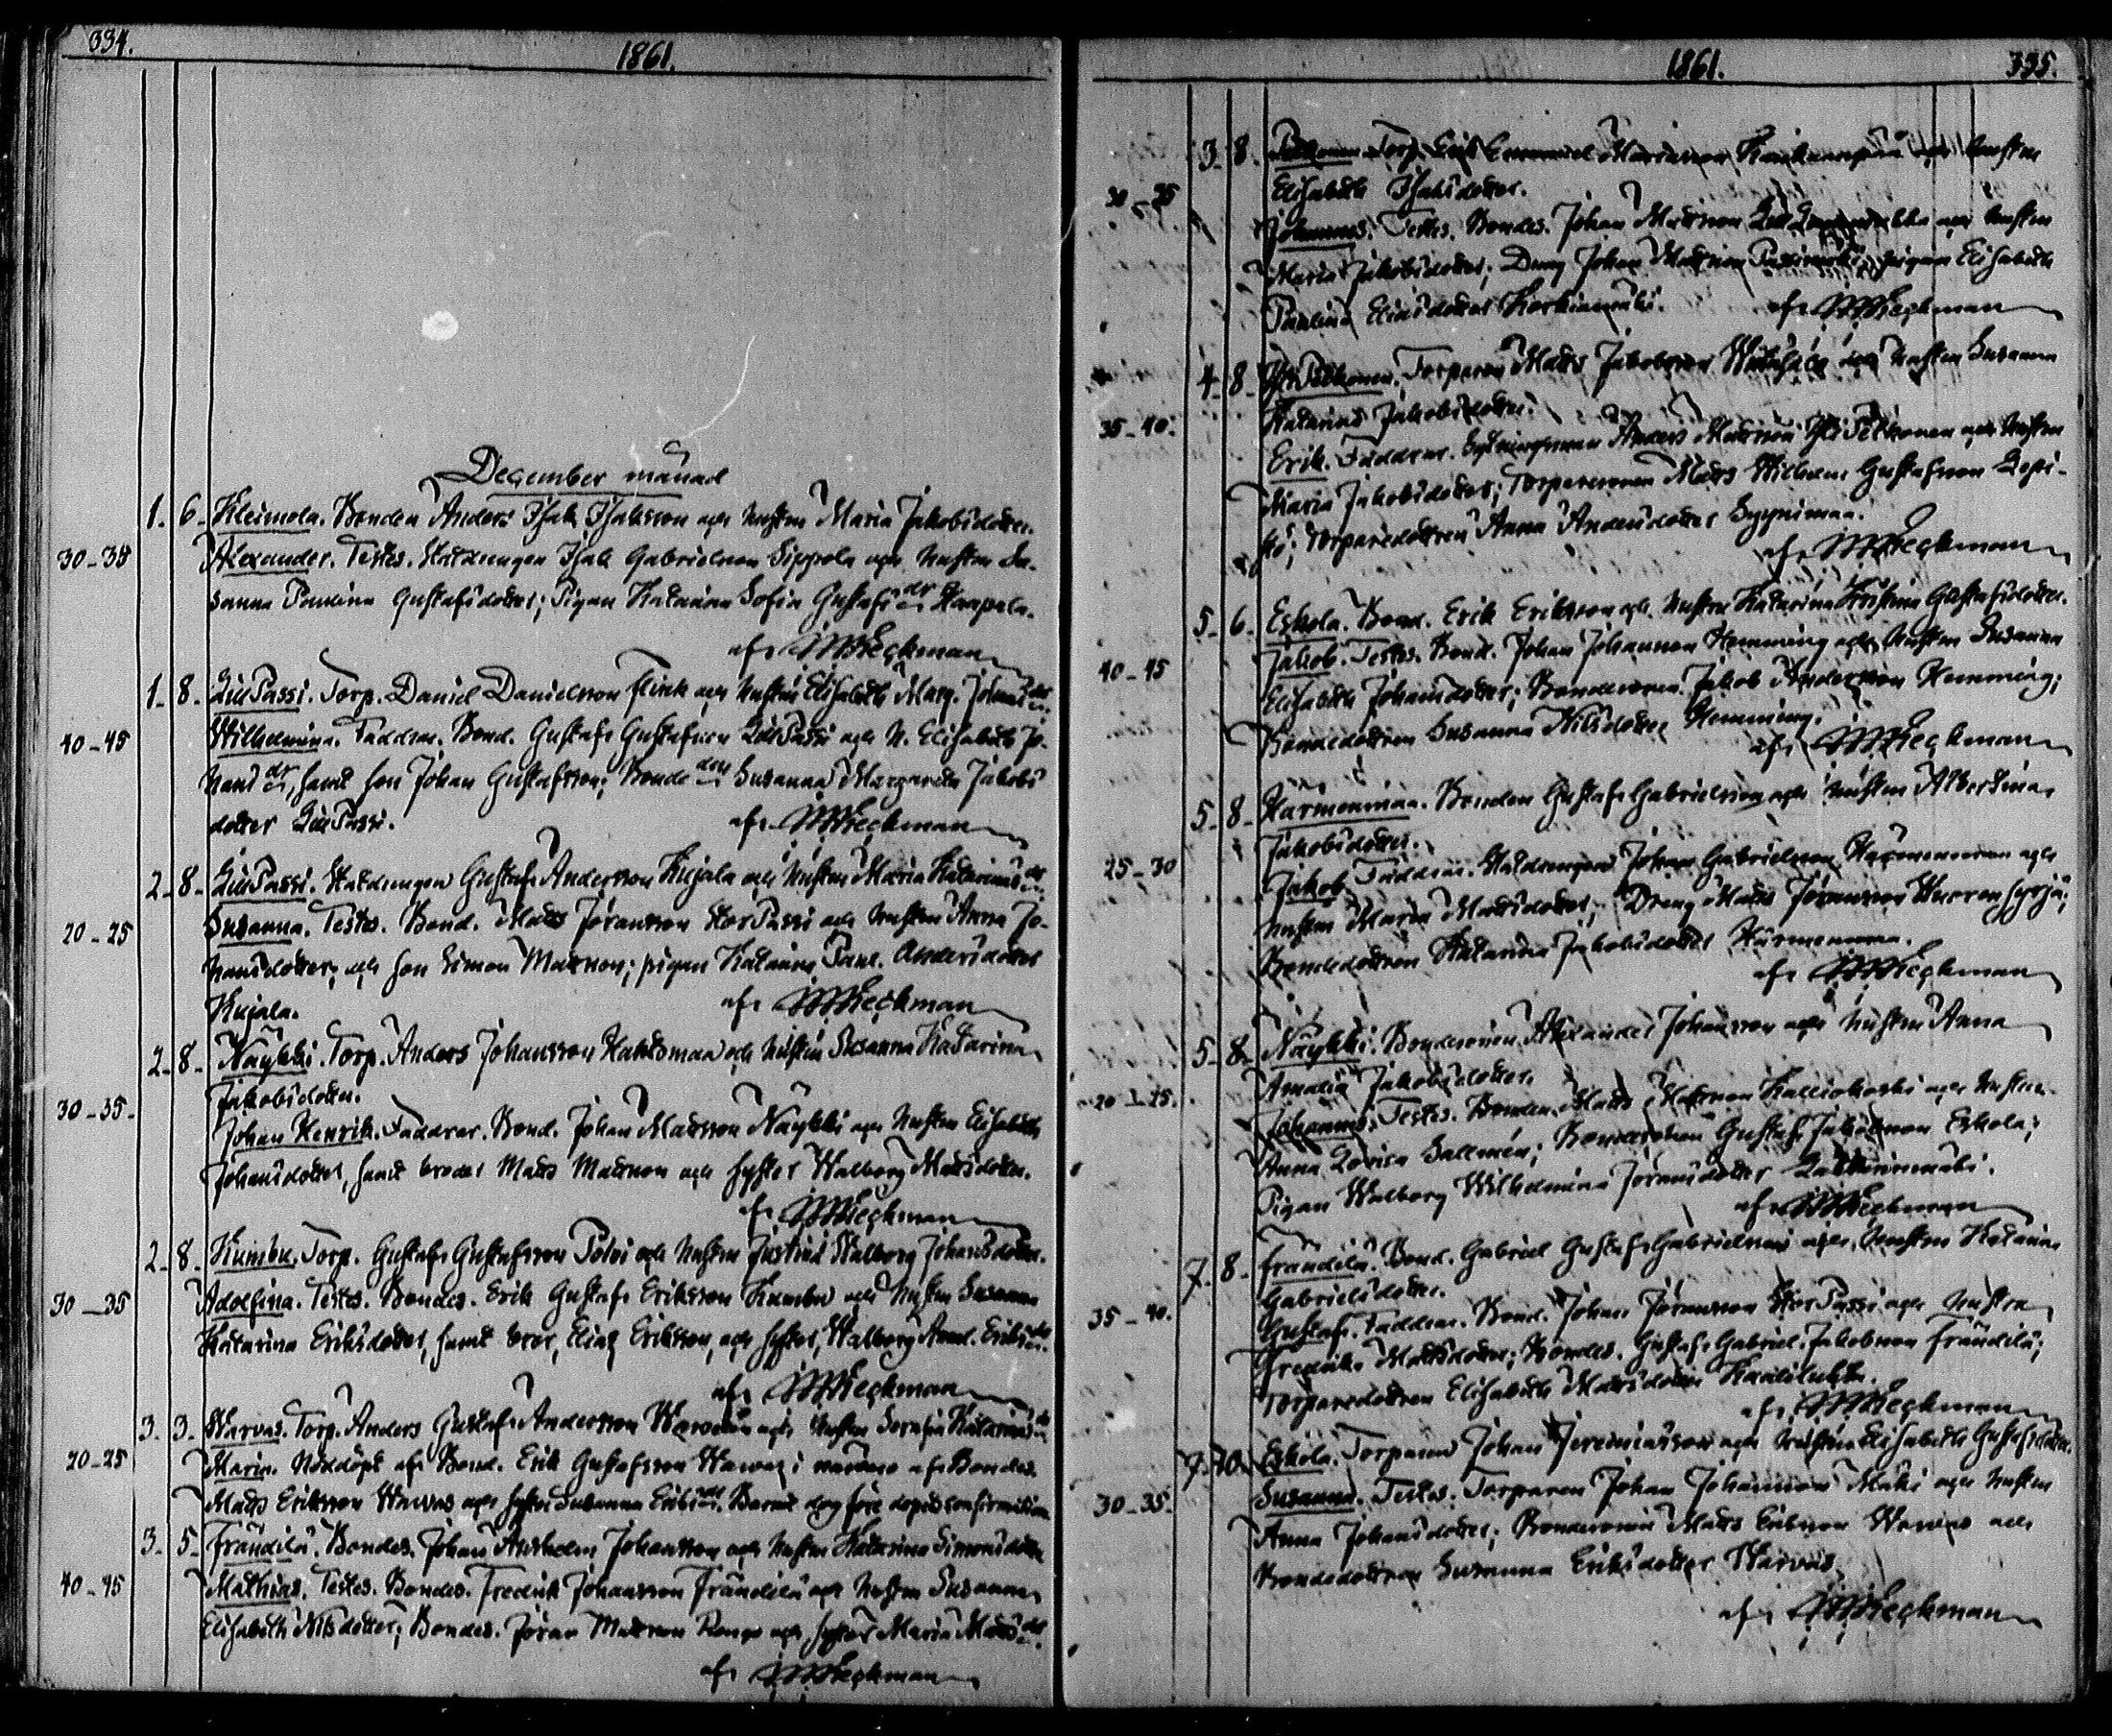 334.
1861.
December månad
1. 6. Kleimola. Bonden Anders Isak Isaksson och hustru Maria Jakobsdotter.
30-35 Alexander. Testes. Statdrengen Isak Gabrielsson Sippola och hustru Su-
sanna Paulina Gustafsdotter; Pigan Katarina Sofia Gustafsdr Haapala.
af
1. 8. Lill Passi. Torp. Daniel Danielsson Flink och hustru Elisabeth Marg. Johansdr.
40-45 Wilhelmina. Faddrar. Bond. Gustaf Gustafsson Lill Passi och h. Elisabeth Jo-
hansdr, samt son Johan Gustafsson; Bonde Susanna Margareta Jakobs
dotter Lill Passi. af
2. 8. Lill Passi. Statdrengen Gustaf Andersson Kujala och hustru Maria Katarina
20-25 Susanna. Testes. Bond. Matts Jöransson Stor Passi och hustru Anna Jo-
hansdotter, och son Simon Mattsson; pigan Katarina Paul. Andersdotter
Kujala. af
2. 8. Näykki. Torp. Anders Johansson och hustru Susanna Katarina
Jakobsdotter.
30-35. Johan Henrik. Faddrar. Bond. Johan Mattsson Näykki och hustru Elisabeth
Johansdotter, samt broder Matts Mattsson och syster Walborg Mattsdotter.
af
2. 8. Kumbu. Torp. Gustaf Gustafsson Polvi och hustru Justina Walborg Johansdotter.
30-35 Adolfina. Testes. Bondes. Erik Gustaf Eriksson Kumbu och hustru Susanna
Katarina Eriksdotter, samt bror, Elias Eriksson, och syster, Walborg Amal. Eriksdr.
af
3. 3. Warvas. Torp. Anders Gustaf Andersson och hustru Serafia Katarina
20-25 Maria. Nöddöpt af Bond. Erik Gustafsson Warvas i närvaro af Bondes.
Matts Eriksson Warvas och syster Susanna Eriksdr. Barnet dog före dopets confirmation
3. 5. Frändilä. Bondes. Johan Anshelm Johansson och hustru Katarina Simonsdotter
40-45 Mathias. Testes. Bondes. Fredrik Johansson Frändilä och hustru Susanna
Elisabeth Nilsdotter; Bondes. Jöran Mattsson och syster Maria Mattsdr.
af
1861. 335.
3. 8. Torp. Emanuel och hustru
Elisabeth Isaksdotter.
30-35
Johannes. Testes. Bondes. Johan Mattsson och hustru
Maria Jakobsdotter; Dreng Johan Mattsson pigan Elisabeth
Paulina Eliasdotter Korkiamäki. af
4. 8. Torparen Matts Jakobsson och hustru Susanna
35-40. Katarina Jakobsdotter.
Erik. Faddrar. Sytningsman Anders Mattsson och hustru
Maria Jakobsdotter; Torparesonen Matts Wilhelm Gustafsson Lepi-
stö; Torparedottren Anna Andersdotter Syynimaa.
af
5. 6. Eskola. Bond. Erik Eriksson och hustru Katarina Kristina Gustafsdotter.
40-45 Jakob. Testes. Bond. Johan Johansson Hemming och hustru Susanna
Elisabeth Johansdotter; Bondesonen Jakob Andersson Hemming;
Bondedottren Susanna Nilsdotter Hemming.
af
5. 8. Härmenmaa. Bonden Gustaf Gabrielsson och hustru Albertina
Jakobsdotter.
25-30 Jakob. Faddrar. Statdrengen Johan Gabrielsson Härmenmaa och
hustru Maria Mattsdotter; Dreng Matts Jöransson
Bondedottren Katarina Jakobsdotter Härmenmaa.
af
5. 8. Näykki. Bondesonen Alexander Johansson och hustru Anna
Amalia Jakobsdotter.
20-25. Johannes. Testes. Bonden Matts Mattsson Kalliokoski och hustru
Anna Lovisa Sallmén; Bondesonen Gustaf Jakobsson Eskola;
Pigan Walborg Wilhelmina Jöransdotter
af
7. 8. Frändilä. Bond. Gabriel Gustaf Gabrielsson och hustru Katarina
Gabrielsdotter.
35-40. Gustaf. Faddrar. Bond. Johan Jöransson Stor Passi och hustru
Fredrika Mattsdotter; Bondes. Gustaf Gabriel Jakobsson Frändilä;
Torparedottren Elisabeth Mattsdotter
af
7. 10. Eskola. Torparen Johan Jeremiasson och hustru Elisabeth Gustafsdotter.
30-35. Susanna. Testes. Torparen Johan Johansson Mäki och hustru
Anna Johansdotter; Bondesonen Matts Eriksson Warvas och
Bondedottren Susanna Eriksdotter Warvas.
af